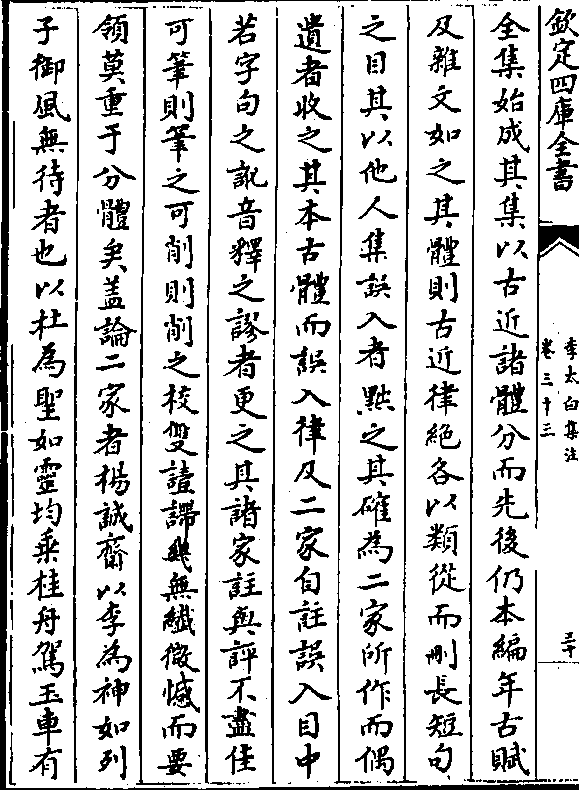 欽定四庫全書
李太白集注
卷三十三
三十
全集始成其集以古近諸體分而先後仍本編年古賦
及雜文如之其體則古近律絶各以類從而刪長短句
之目其以他人集誤入者㸃之其確為二家所作而偶
遺者收之其本古體而誤入律及二家自註誤入目中
若字句之訛音釋之謬者更之其諸家註與評不盡佳
可筆則筆之可削則削之校雙諠譁幾無纎微憾而要
領莫重于分體矣盖論二家者楊誠齋以李為神如列
子御風無待者也以杜為聖如靈均乗桂舟駕玉車有